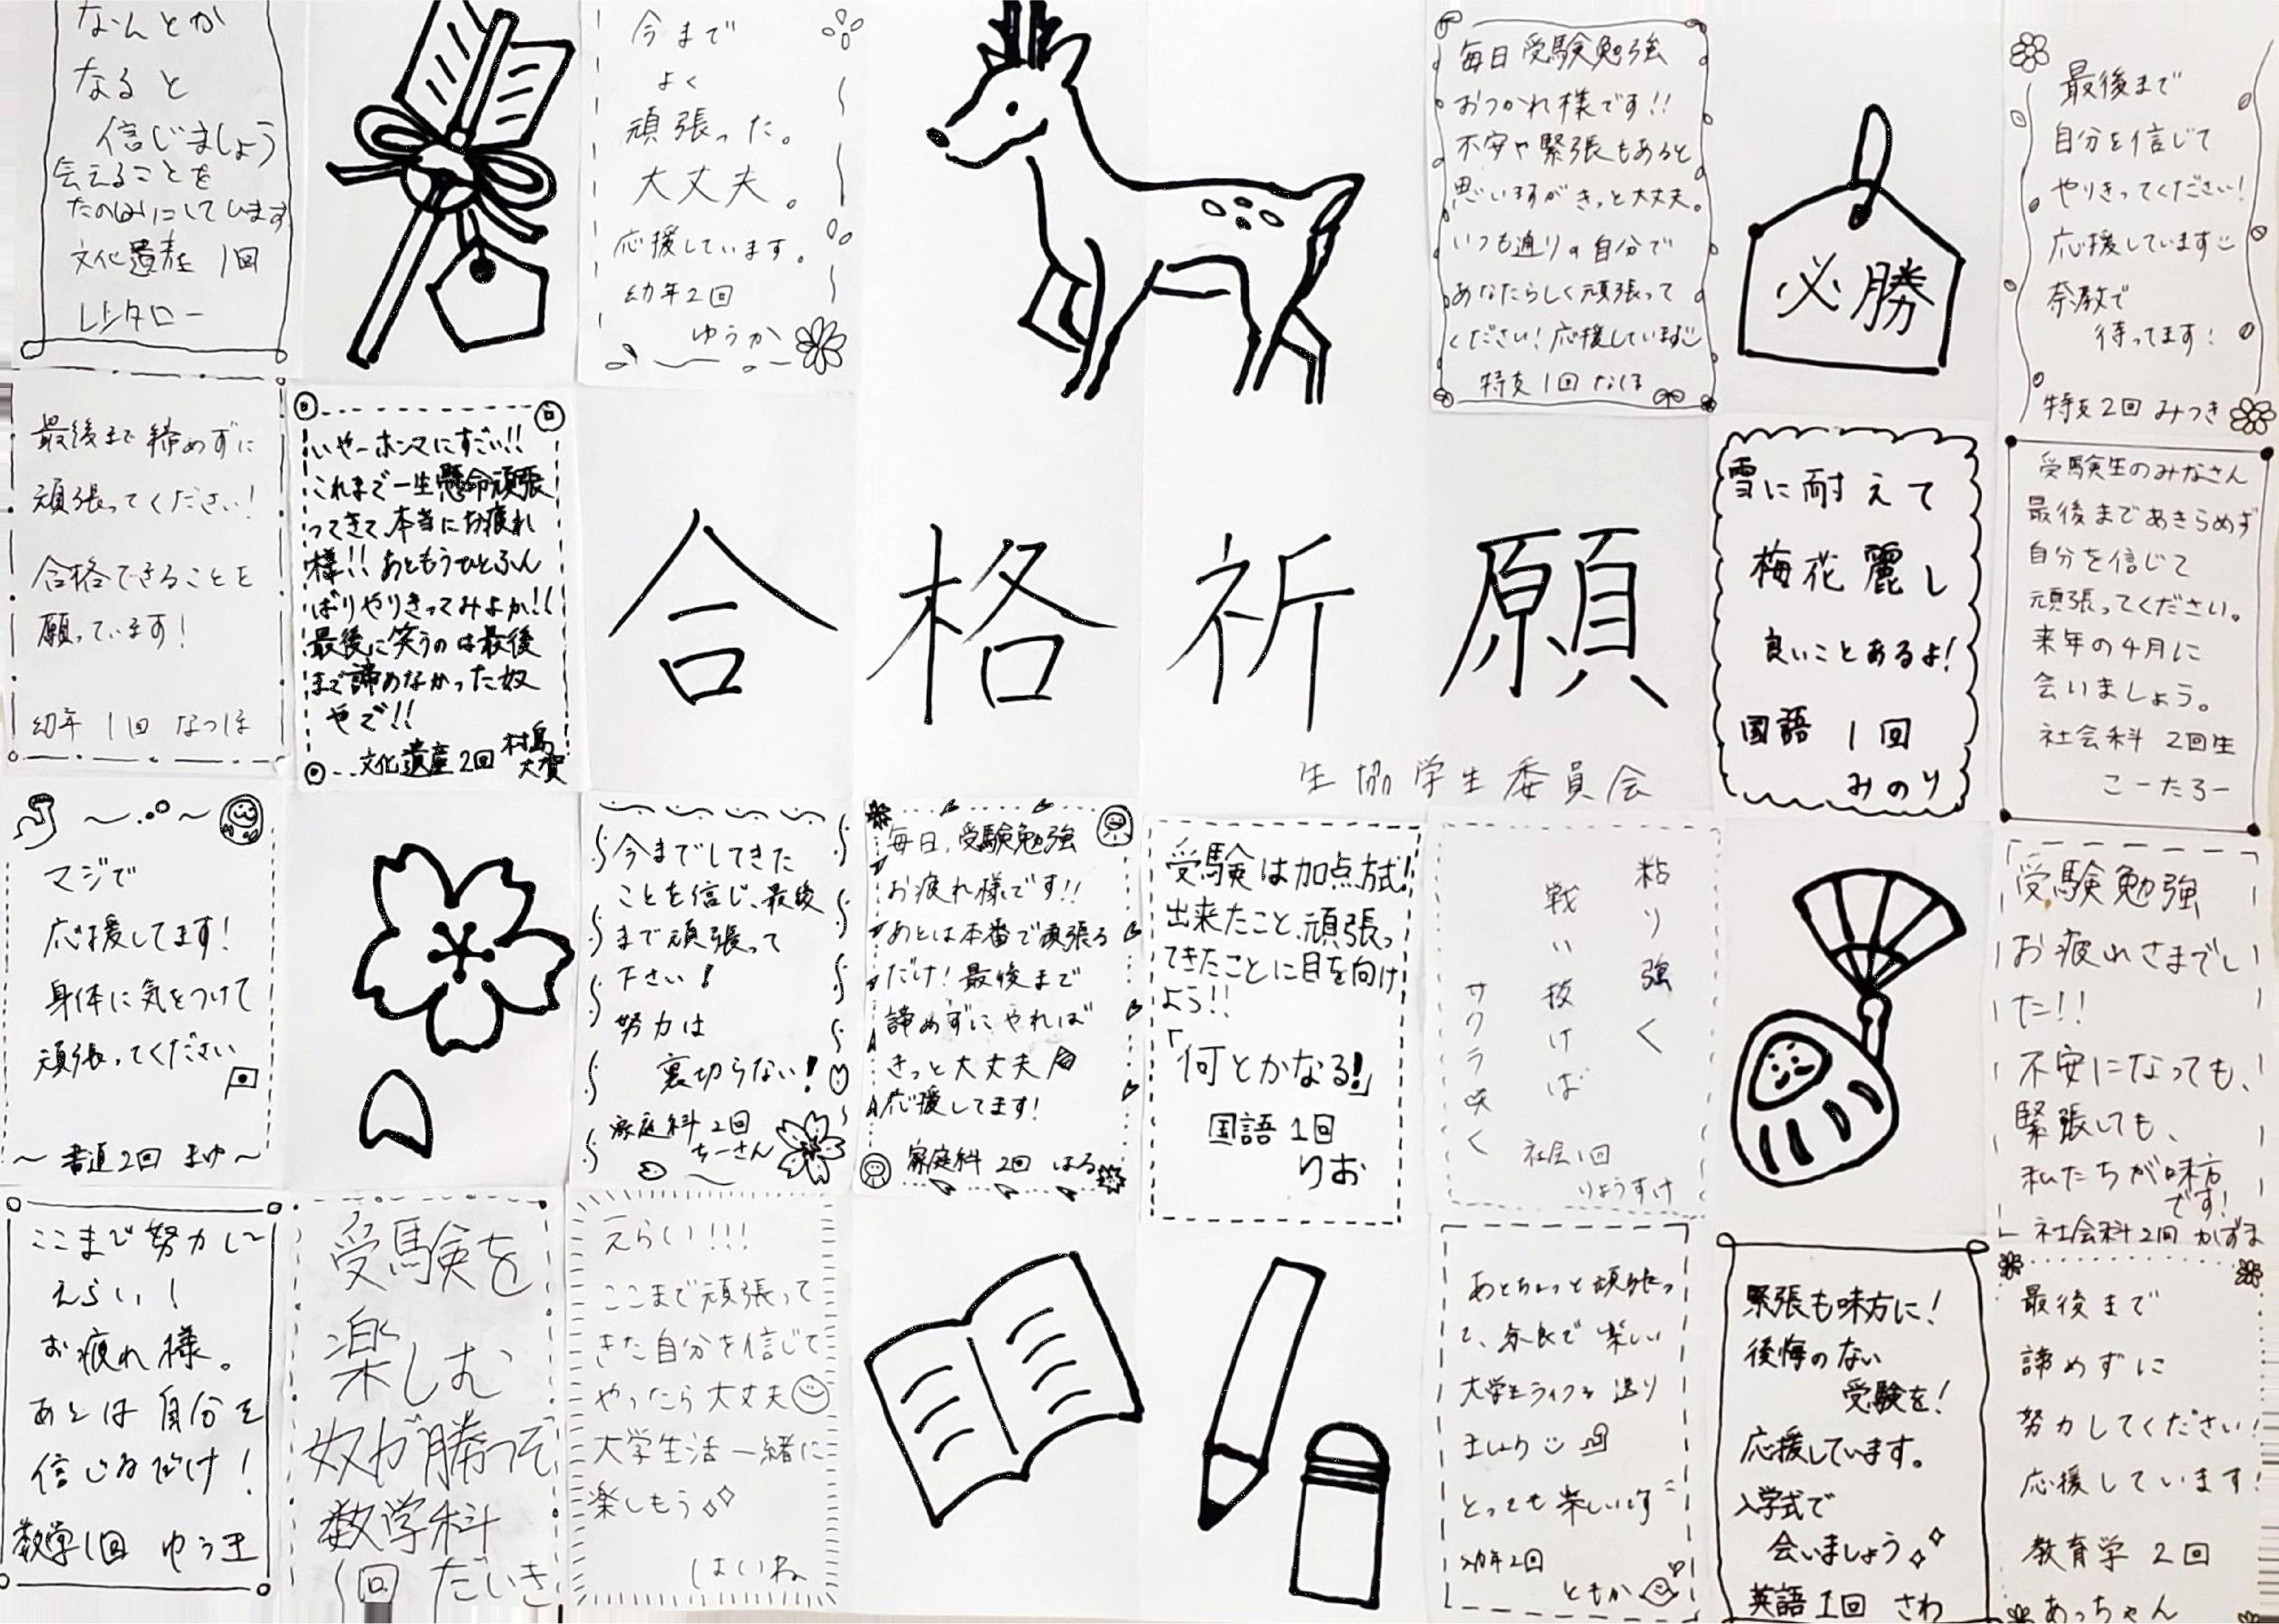 なんとか
なると
信じましょう
会えることを
たのしみにしています
文化遺産 1回
今まで
よく
頑張った。
大丈夫。
応援しています。
幼年2回
ゆうか
毎日受験勉強
おつかれ様です!!
不安や緊張もあると
思いますがきっと大丈夫。
いつも通りの自分で
あなたらしく頑張って
ください!応援しています
特支1回 なほ
必勝
最後まで
自分を信じて
やりきってください!
応援しています
奈教で
待ってます!
特支2回 みつき
最後まで締めずに
頑張ってください!
合格できることを
願っています!
幼年 1回 なつほ
いやーホンマにすごい!!
これまで一生懸命頑張
ってきて、本当にお疲れ
様!!あともうひとふん
ばりやりきってみよか!!
最後に笑うのは最後
まで諦めなかった奴
やで!!
文化遺産2回 村島大賀
合格祈願
生協学生委員会
雪に耐えて
梅花麗し
良いことあるよ!
国語 1回
みのり
受験生のみなさん
最後まであきらめず
自分を信じて
頑張ってください。
来年の4月に
会いましょう。
社会科 2回生
こーたろー
マジで
応援してます!
身体に気をつけて
頑張ってください
〜書道2回 まゆ〜
今までしてきた
ことを信じ、最後
まで頑張って
下さい!
努力は
裏切らない!
家庭科2回
ちーさん
毎日、受験勉強
お疲れ様です!!
あとは本番で頑張る
だけ!最後まで
諦めずにやれば
きっと大丈夫
応援してます!
家庭科 2回 はる
受験は加点方式!
出来たこと、頑張っ
てきたことに目を向け
よう!!
「何とかなる!」
国語1回
りお
粘り強く
戦い抜けば
サクラ咲く
社会1回
りょうすけ
受験勉強
お疲れさまでし
た!!
不安になっても、
緊張しても、
私たちが味方
です!
社会科2回 かずま
ここまで努力して
えらい!
お疲れ様。
あとは自分を
信じるだけ!
数学1回 ゆう王
受験を
楽しむ
奴が勝つぞ
数学科
1回 だいき
えらい!!!
ここまで頑張って
きた自分を信じて
やったら大丈夫
大学生活一緒に
楽しもう
はいね
あとちょっと頑張っ
て、奈良で楽しい
大学生ライフを送り
ましょう
とっても楽しいです
幼年2回
ともか
緊張も味方に!
後悔のない
受験を!
応援しています。
入学式で
会いましょう
英語1回 さわ
最後まで
諦めずに
努力してください!
応援しています!
教育学 2回
あっちゃん